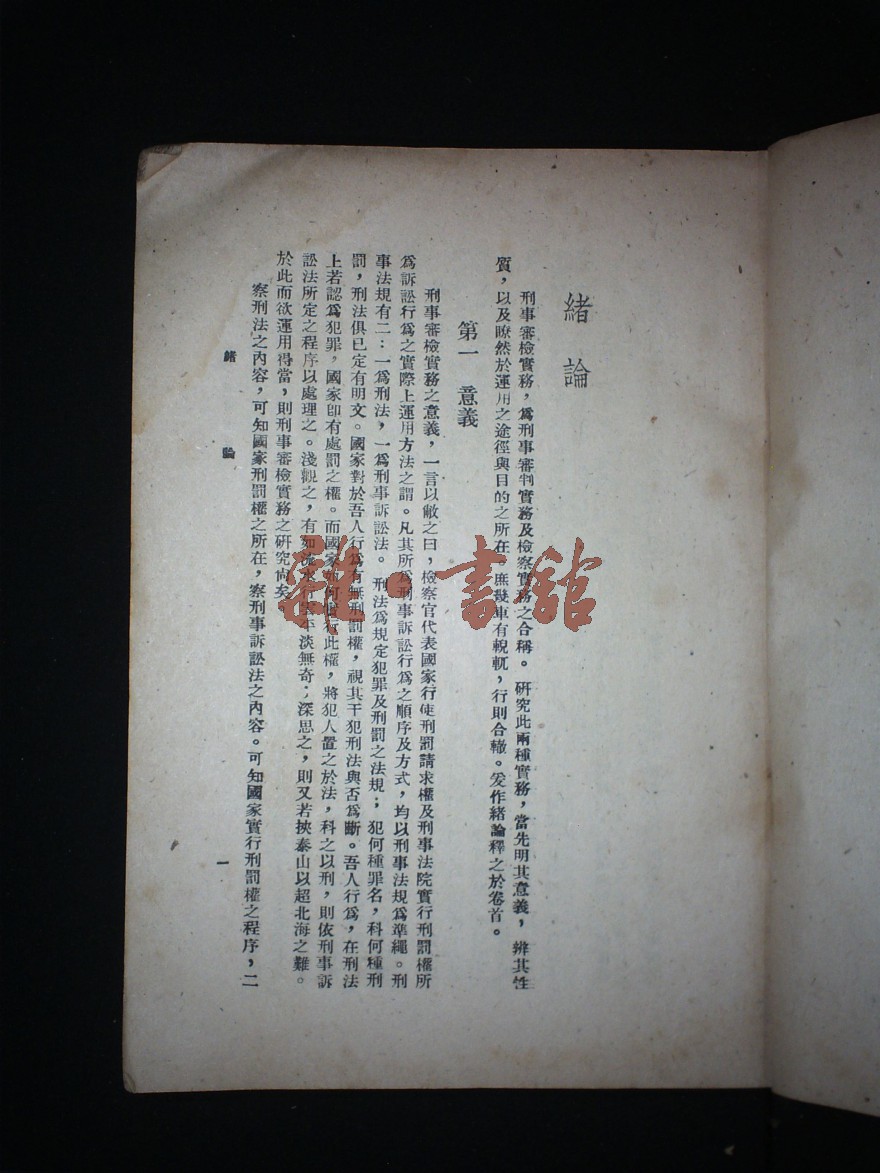 緒論
刑事審檢實務，爲刑事審判實務及檢察實務之合稱。研究此兩種實務，當先明其意義，辨其性
質，以及瞭然於運用之途徑與目的之所在，庶幾車有輗軏，行則合轍。爰作緒論釋之於卷首。
第一　意義
刑事審檢實務之意義，一言以敝之曰，檢察官代表國家行使刑罰請求權及刑事法院實行刑罰權所
爲訴訟行爲之實際上運用方法之謂。凡其所爲刑事訴訟行爲之順序及方式，均以刑事法規爲準繩。刑
事法規有二：一爲刑法，一爲刑事訴訟法。刑法爲規定犯罪及刑罰之法規；犯何種罪名，科何種刑
罰，刑法俱已定有明文。國家對於吾人行爲有無刑罰權，視其干犯刑法與否爲斷。吾人行爲，在刑法
上若認爲犯罪，國家卽有處罰之權。而國家如何實行此權，將犯人置之於法，科之以刑，則依刑事訴
訟法所定之程序以處理之。淺觀之，有如流水行雲平淡無奇；深思之，則又若挾泰山以超北海之難。
於此而欲運用得當，則刑事審檢實務之研究尚矣
察刑法之內容，可知國家刑罰權之所在，察刑事訴訟法之內容。可知國家實行刑罰權之程序，二
緒論
一
雜·書館